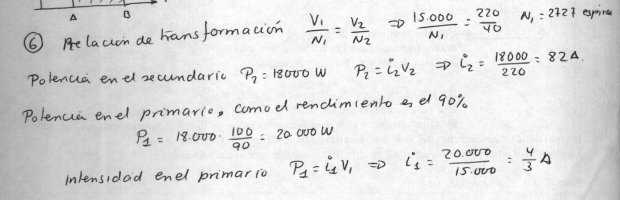 A B
⑥ Relación de transformación V₁/N₁ = V₂/N₂ ⇒ 15.000/N₁ = 220/40 N₁ = 2727 espiras
Potencia en el secundario P₂ = 18000 W P₂ = i₂V₂ ⇒ i₂ = 18000/220 = 82 A.
Potencia en el primario, como el rendimiento es el 90%
P₁ = 18.000 · 100/90 = 20.000 W
Intensidad en el primario P₁ = i₁V₁ ⇒ i₁ = 20.000/15.000 = 4/3 A